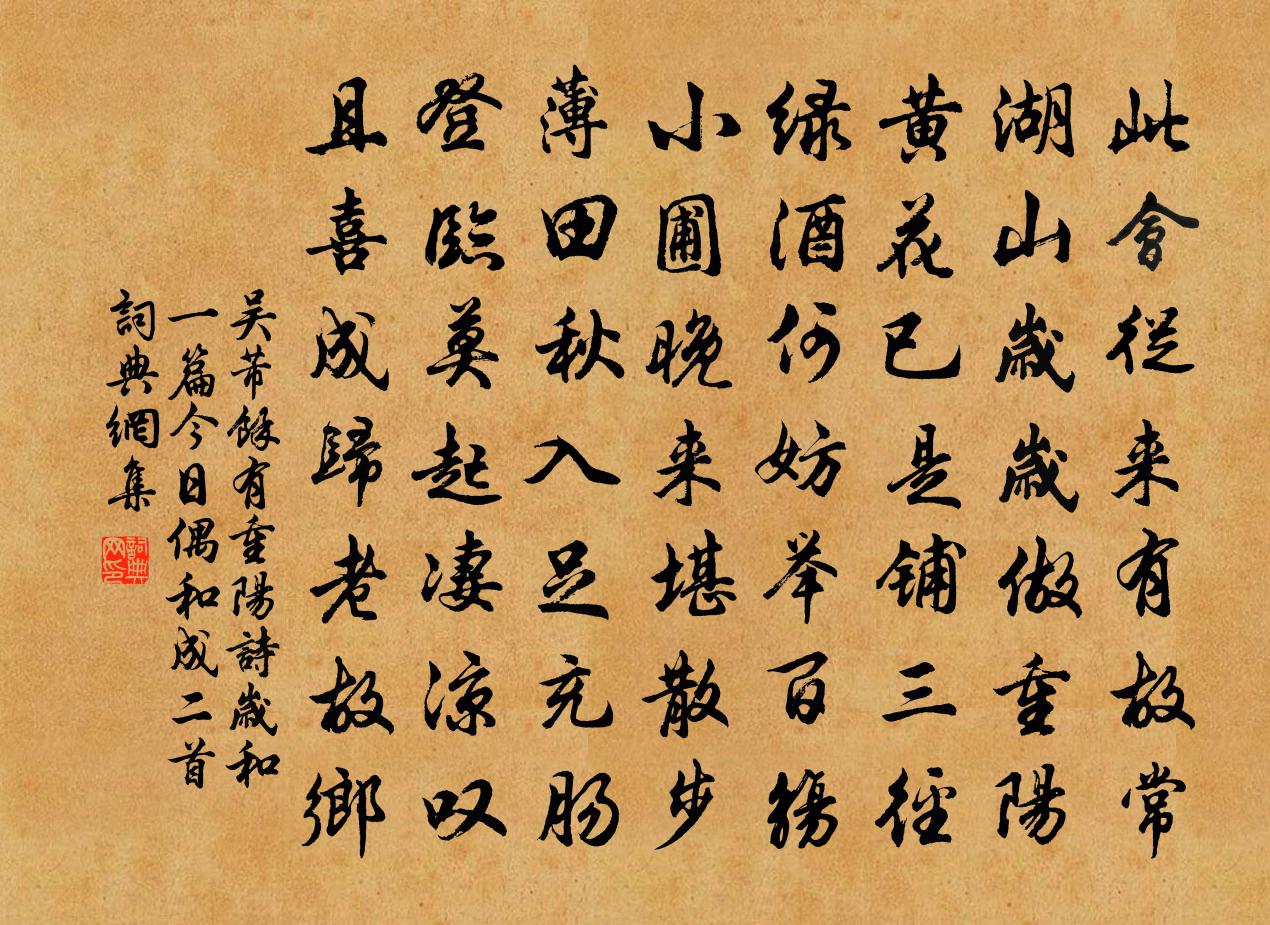 此會從来有故常
湖山歲歲做重陽
黄花已是鋪三徑
绿酒何妨举百觴
小圃晚来堪散步
薄田秋入足充肠
登臨莫起凄凉叹
且喜成歸老故鄉
吴芾餘有重陽詩歲和
一篇今日偶和成二首
詞典網集
詞典
网印